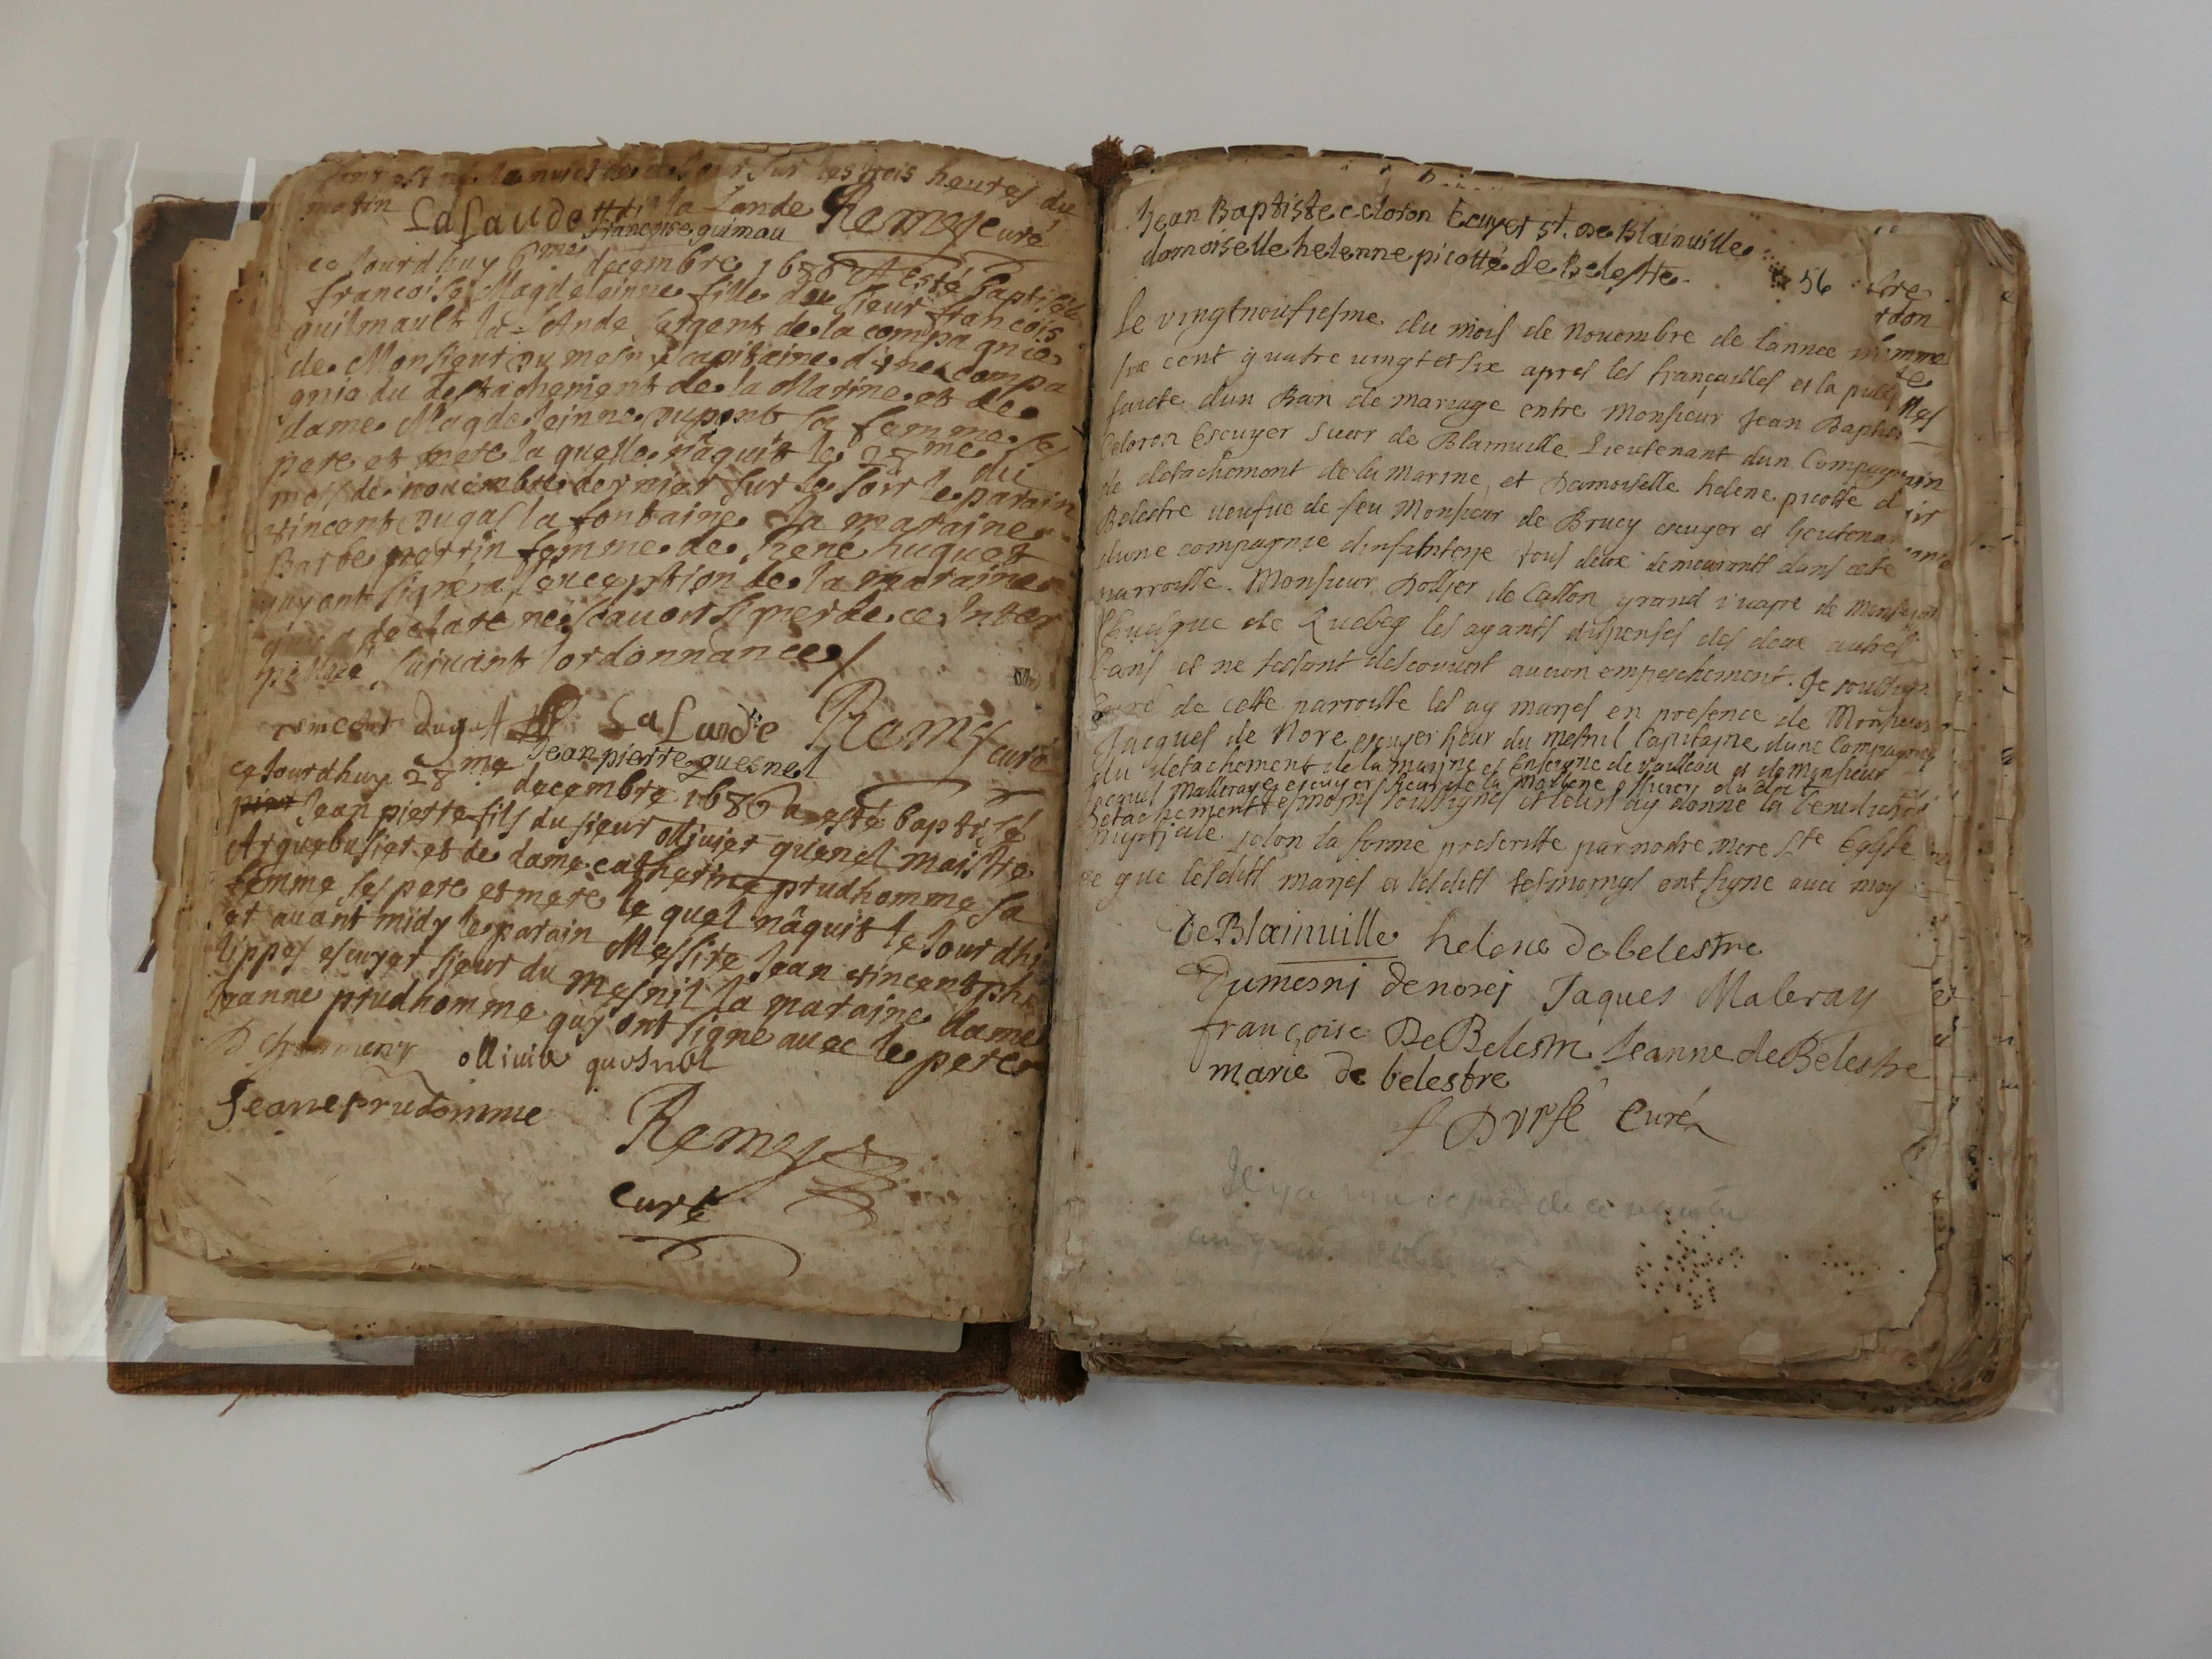 sur les trois heures du
matin LaLande de la Lande Remy curé
francoise guimau
ce Jourdhuy 6me decembre 1686 A esté baptisée
francoise Magdeleinne fille du sieur francois
guilmault la=Lande sergent de la compagnie
de Monsieur du mesny capitaine d'une compa
gnie du destachement de la Marine et de
dame Magdeleinne dupont sa femme ses
pere et mere la quelle naquit le 28me du
mois de nouembre dernier sur le soir le parain
vincent dugas la fontaine La maraine
Barbe perrin femme de Rene huguet
quy ont signé a l'exception de la maraine
quy a declare ne scauoir signer de ce Inter
pellée suiuant lordonnance
vincent dugast LaLande Remy curé
Jean pierre quesnel
ce Jourdhuy 28me decembre 1686 a esté baptisé
Jean pierre fils du sieur ollivier quenel maistre
Arquebusier et de dame catherine prudhomme sa
femme ses pere et mere le quel naquit le Jourdhi
et auant midy le parain Messire Jean vincent phi
lippes escuyer sieur du Mesnil la maraine dame
Jeanne prudhomme quy ont signe auec le pere
olliuie quesnel
Jeane prudomme
Remy
Curé
Jean Baptiste celoron Ecuyer sr. De Blainuille
damoiselle helenne picotté de belestre
56
Le vingtneufiesme du mois de Nouembre de lannee mil
six cent quatre vingt et six apres les françailles et la publi
faicte dun Ban de mariage entre Monsieur Jean Baptiste
Celoron Escuyer sieur de Blainuille Lieutenant dun Compagnie
de detachement de la marine, et Damoiselle helene picotte de
Belestre veufue de feu Monsieur de Brucy escuyer et lieutenan
dune compagnie dinfanterie tous deux demeurants dans cete
parroisse. Monsieur Dollier de Casson grand vicaire de Monseign
l'Euesque de Quebeq les ayants dispensés des deux autres
bans et ne sestant descouuert aucun empeschement. Je soussign
Curé de cette parroisse les ay mariés en presence de Monsieur
Jacques de Nore escuyer sieur du mesnil Capitaine dune Compagnie
du detachement de la marine et Enseigne de vaisseau et de Monsieur
Jacques Malleraye escuyer sieur de la Mollerie officiers du dit
detachement tesmoins soussignés et leurs ay donné la benediction
nuptiale selon la forme prescritte par nostre mere Ste Eglise
ce que lesdits mariés et lesdits tesmoings ont signe auec moy
De Blainuille helene de belestre
Dumesni denorei Jaques Maleray
françoise De Belestre Jeanne de Belestre
marie de belestre
f Durfé Curé
Il y a une copie de ce